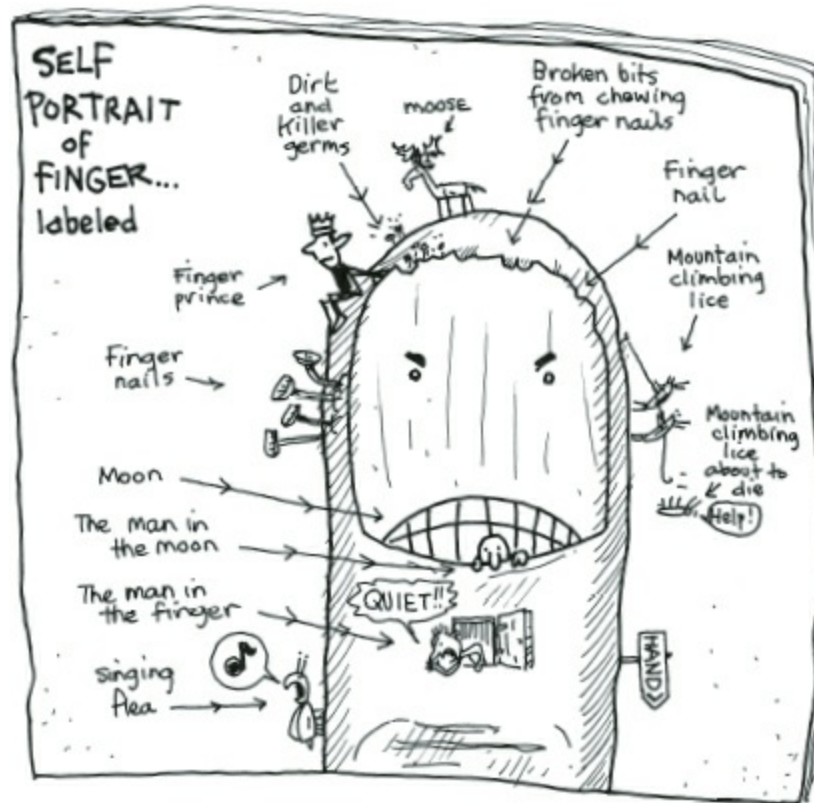 SELF
PORTRAIT
of
FINGER...
labeled
Dirt
and
killer
germs
moose
Broken bits
from chewing
finger nails
Finger
nail
Mountain
climbing
lice
Finger
prince
Finger
nails
Mountain
climbing
lice
about to
die
Help!
Moon
The man in
the moon
The man in
the finger
QUIET!!
singing
flea
HAND